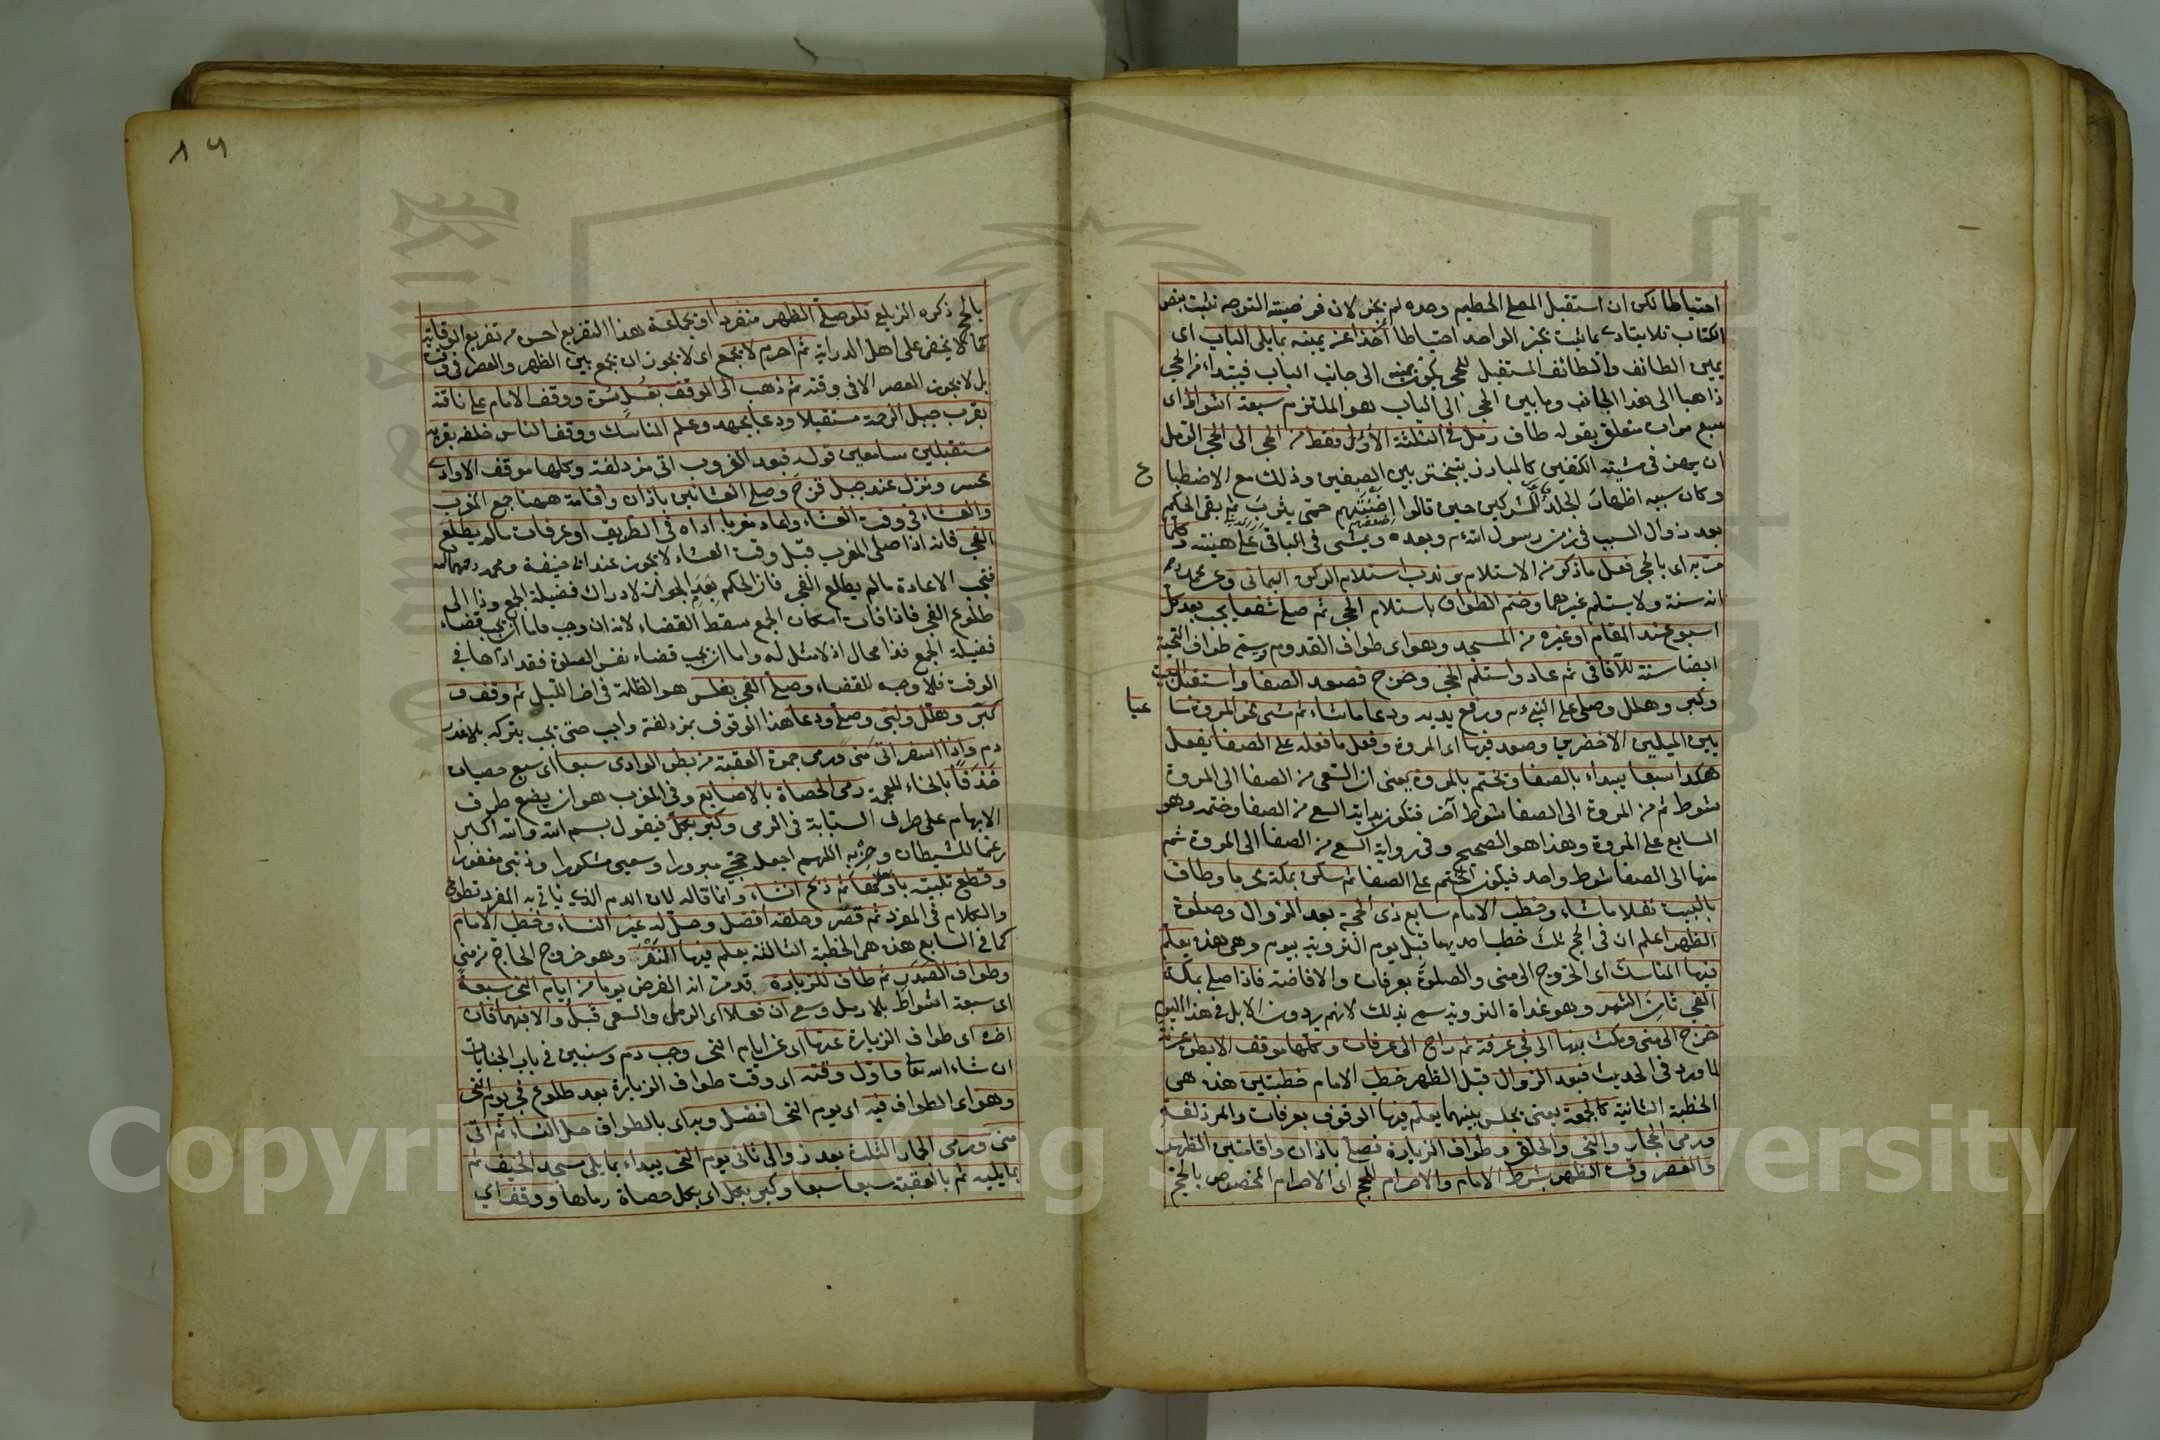 احتياطا لكن ان استقبل المصلى الحطيم وحده لم يجز لان فرضية التوجه ثبتت بنص
الكتاب فلا يتادى بما ثبت بخبر الواحد احتياطا آخذا عن يمينه مما يلى الباب اى
يمين الطائف والطائف المستقبل للحجر يكون يمينه الى جانب الباب فيبتداء من الحجر
ذاهبا الى هذا الجانب وما بين الحجر الى الباب هو الملتزم سبعة اشواط اى
سبع مرات متعلق بقوله طاف رمل فى الثلثة الأوَل فقط من الحجر الى الحجر الرمل
ان يهز فى مشيته الكتفين كالمبارز يتبختر بين الصفين وذلك مع الاضطباع
وكان سببه اظهار الجلد للمشركين حين قالوا اضنتهم حمى يثرب ثم بقى الحكم
اضعفتهم
بعد زوال السبب فى زمن رسول الله م وبعده ويمشى فى الباقى على هينته وكلما
مر به اى بالحجر فعل ما ذكر من الاستلام وندب استلام الركن اليمانى وعن محمد رحمه
انه سنة ولا يستلم غيرهما وختم الطواف باستلام الحجر ثم صلى شفعا يجب بعد كل
اسبوع عند المقام او غيره من المسجد وهو اى طواف القدوم ويسمى طواف التحية
ايضا سنة للآفاقى ثم عاد واستلم الحجر وخرج فصعد الصفا واستقبل البيت
وكبر وهلل وصلى على النبى م ورفع يديه ودعا ما شاء ثم مشى نحو المروة ساعيا
بين الميلين الاخضرين وصعد فيها اى المروة وفعل ما فعله على الصفا يفعل
هكذا سبعا يبداء بالصفا ويختم بالمروة يعنى ان السعى من الصفا الى المروة
شوط ثم من المروة الى الصفا شوط آخر فتكون بداية السعى من الصفا وختمه وهو
السابع على المروة وهذا هو الصحيح وفى رواية السعى من الصفا الى المروة ثم
منها الى الصفا شوط واحد فيكون الختم على الصفا ثم سكن بمكة محرما وطاف
بالبيت نفلا ما شاء وخطب الامام سابع ذى الحجة بعد الزوال وصلوة
الظهر اعلم ان فى الحج ثلث خطب احديها قبل يوم التروية بيوم وهى هذه يعلّم
فيها المناسك اى الخروج الى منى والصلوة بعرفات والافاضة فاذا صلى بمكة
الفجر ثامن الشهر وهو غداة التروية سمى بذلك لانهم يروون الابل فى هذا اليوم
خرج الى منى ومكث بها الى فجر عرفة ثم راح الى عرفات وكلها موقف الا بطن عرنة
لما ورد فى الحديث فبعد الزوال قبل الظهر خطب الامام خطبتين هذه هى
الخطبة الثانية كالجمعة يعنى يجلس بينهما يعلم فيها الوقوف بعرفات والمزدلفة
ورمى الجمار والنحر والحلق وطواف الزيارة فصلى باذان واقامتين الظهر
والعصر وقت الظهر بشرط الامام والاحرام للحج اى الاحرام المخصوص بالحج
١٦
بالحج ذكره الزيلعى فلو صلى الظهر منفردا او بجماعة هذا التفريع احسن من تفريع الوقاية
كما لا يخفى على اهل الدراية ثم احرم لا يجمع اى لا يجوز ان يجمع بين الظهر والعصر فى وقت
بل لا يجوز العصر الا فى وقته ثم ذهب الى الموقف بغسل سن ووقف الامام على ناقته
بقرب جبل الرحمة مستقبلا ودعا بجهد وعلم المناسك ووقف الناس خلفه بقربه
مستقبلين سامعين قوله فبعد الغروب اتى مزدلفة وكلها موقف الا وادى
محسر ونزل عند جبل قزح وصلى العشائين باذان واقامة ههنا جمع المغرب
والعشاء فى وقت العشاء واعاد مغربا اداه فى الطريق او عرفات ما لم يطلع
الفجر فانه اذا صلى المغرب قبل وقت العشاء لا يجوز عند ابى حنيفة ومحمد رحمهما الله
فتجب الاعادة ما لم يطلع الفجر فان الحكم بعدم الجواز لادراك فضيلة الجمع وذا الى
طلوع الفجر فاذا فات امكان الجمع سقط القضاء لانه ان وجب فاما ان يجب قضاء
فضيلة الجمع فذا محال اذ لا مثل له واما ان يجب قضاء نفس الصلوة فقد اداها فى
الوقت فلا وجه للقضاء وصلى الفجر بغلس هو الظلمة فى آخر الليل ثم وقف و
كبر وهلل ولبى وصلى ودعا هذا الوقوف بمزدلفة واجب حتى يجب بتركه بلا عذر
دم واذا اسفر اتى منى ورمى جمرة العقبة من بطن الوادى سبعا اى سبع حصيات
خذفا بالخاء المعجمة رمى الحصاة بالاصابع وفى المغرب هو ان يضع طرف
الابهام على طرف السبابة فى الرمى وكبر بكل فيقول بسم الله والله اكبر
رغما للشيطان وحزبه اللهم اجعل حجى مبرورا وسعيى مشكورا وذنبى مغفورا
وقطع تلبيته باولها ثم ذبح ان شاء وانما قاله لان الدم الذى ياتى به المفرد تطوع
والكلام فى المفرد ثم قصر وحلقه افضل وحل له غير النساء وخطب الامام
كما فى السابع هذه هى الخطبة الثالثة يعلم فيها النفر وهو خروج الحاج من منى
وطواف الصدر ثم طاف للزيارة قد مر انه الفرض يوما من ايام النحر سبعة
اى سبعة اشواط بلا رمل وسعى ان فعلا اى الرمل والسعى قبل والا فبهما فان
اخره اى طواف الزيارة عنها اى عن ايام النحر وجب دم وسنبين فى باب الجنايات
ان شاء الله تعا واول وقته اى وقت طواف الزيارة بعد طلوع فجر يوم النحر
وهو اى الطواف فيه اى يوم النحر افضل وبداى بالطواف حل النساء ثم اتى
منى ورمى الجمار الثلث بعد زوال ثانى يوم النحر يبداء بما يلى مسجد الخيف ثم
بما يليه ثم بالعقبة سبعا سبعا وكبر بكل اى بكل حصاة رماها ووقف اى
Copyright © King Saud University